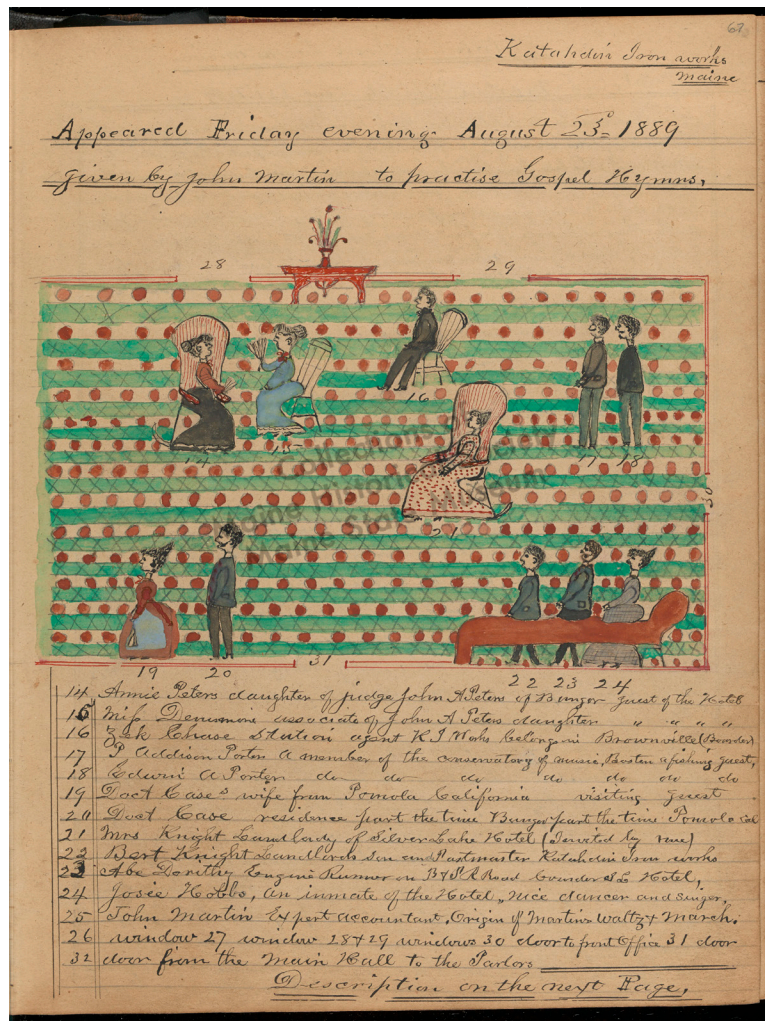 62
Katahdin Iron works
Maine
Appeared Friday evening August 23rd 1889
given by John Martin to practise Gospel Hymns,
28 29
14 15 16 17 18
Collections of
Maine Historical Society
Maine State Museum
21
30
19 20 31 22 23 24
14 Annie Peters daughter of judge John A Peters of Bangor guest of the Hotel
15 Miss Densmore associate of John A Peters daughter " " " "
16 Zek Chase Station agent K I Works belongs in Brownville (Boarder)
17 P. Addison Porter A member of the conservatory of music, Boston a fishing guest,
18 Edwin A Porter do do do do do do do
19 Doct Case's wife from Pomola California visiting guest
20 Doct Case residence part the time Bangor part the time Pomola Cal
21 Mrs Knight Landlady of Silver Lake Hotel (Invited by me)
22 Bert Knight Landlords Son and Postmaster Katahdin Iron works
23 Abe Dorithy Engine Runner on B&P R Road boarder S L Hotel,
24 Josie Hobbs, an inmate of the Hotel, Nice dancer and singer,
25 John Martin Expert accountant, Origin of Martins Waltz & March.
26 window 27 window 28 & 29 windows 30 door to front Office 31 door
32 door from the Main Hall to the Parlors
Description on the next Page,